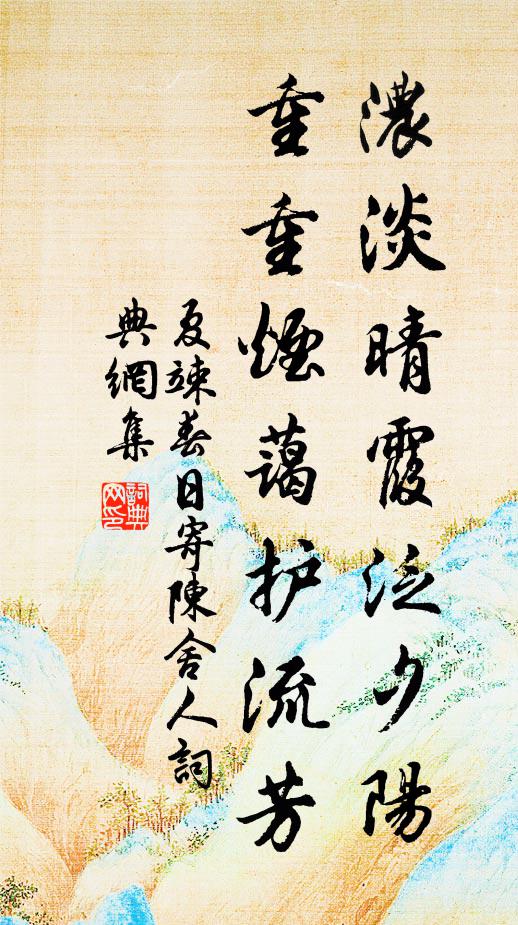 濃淡晴霞泛夕陽
重重煙藹护流芳
夏竦春日寄陳舍人詞
典網集
詞典
网印